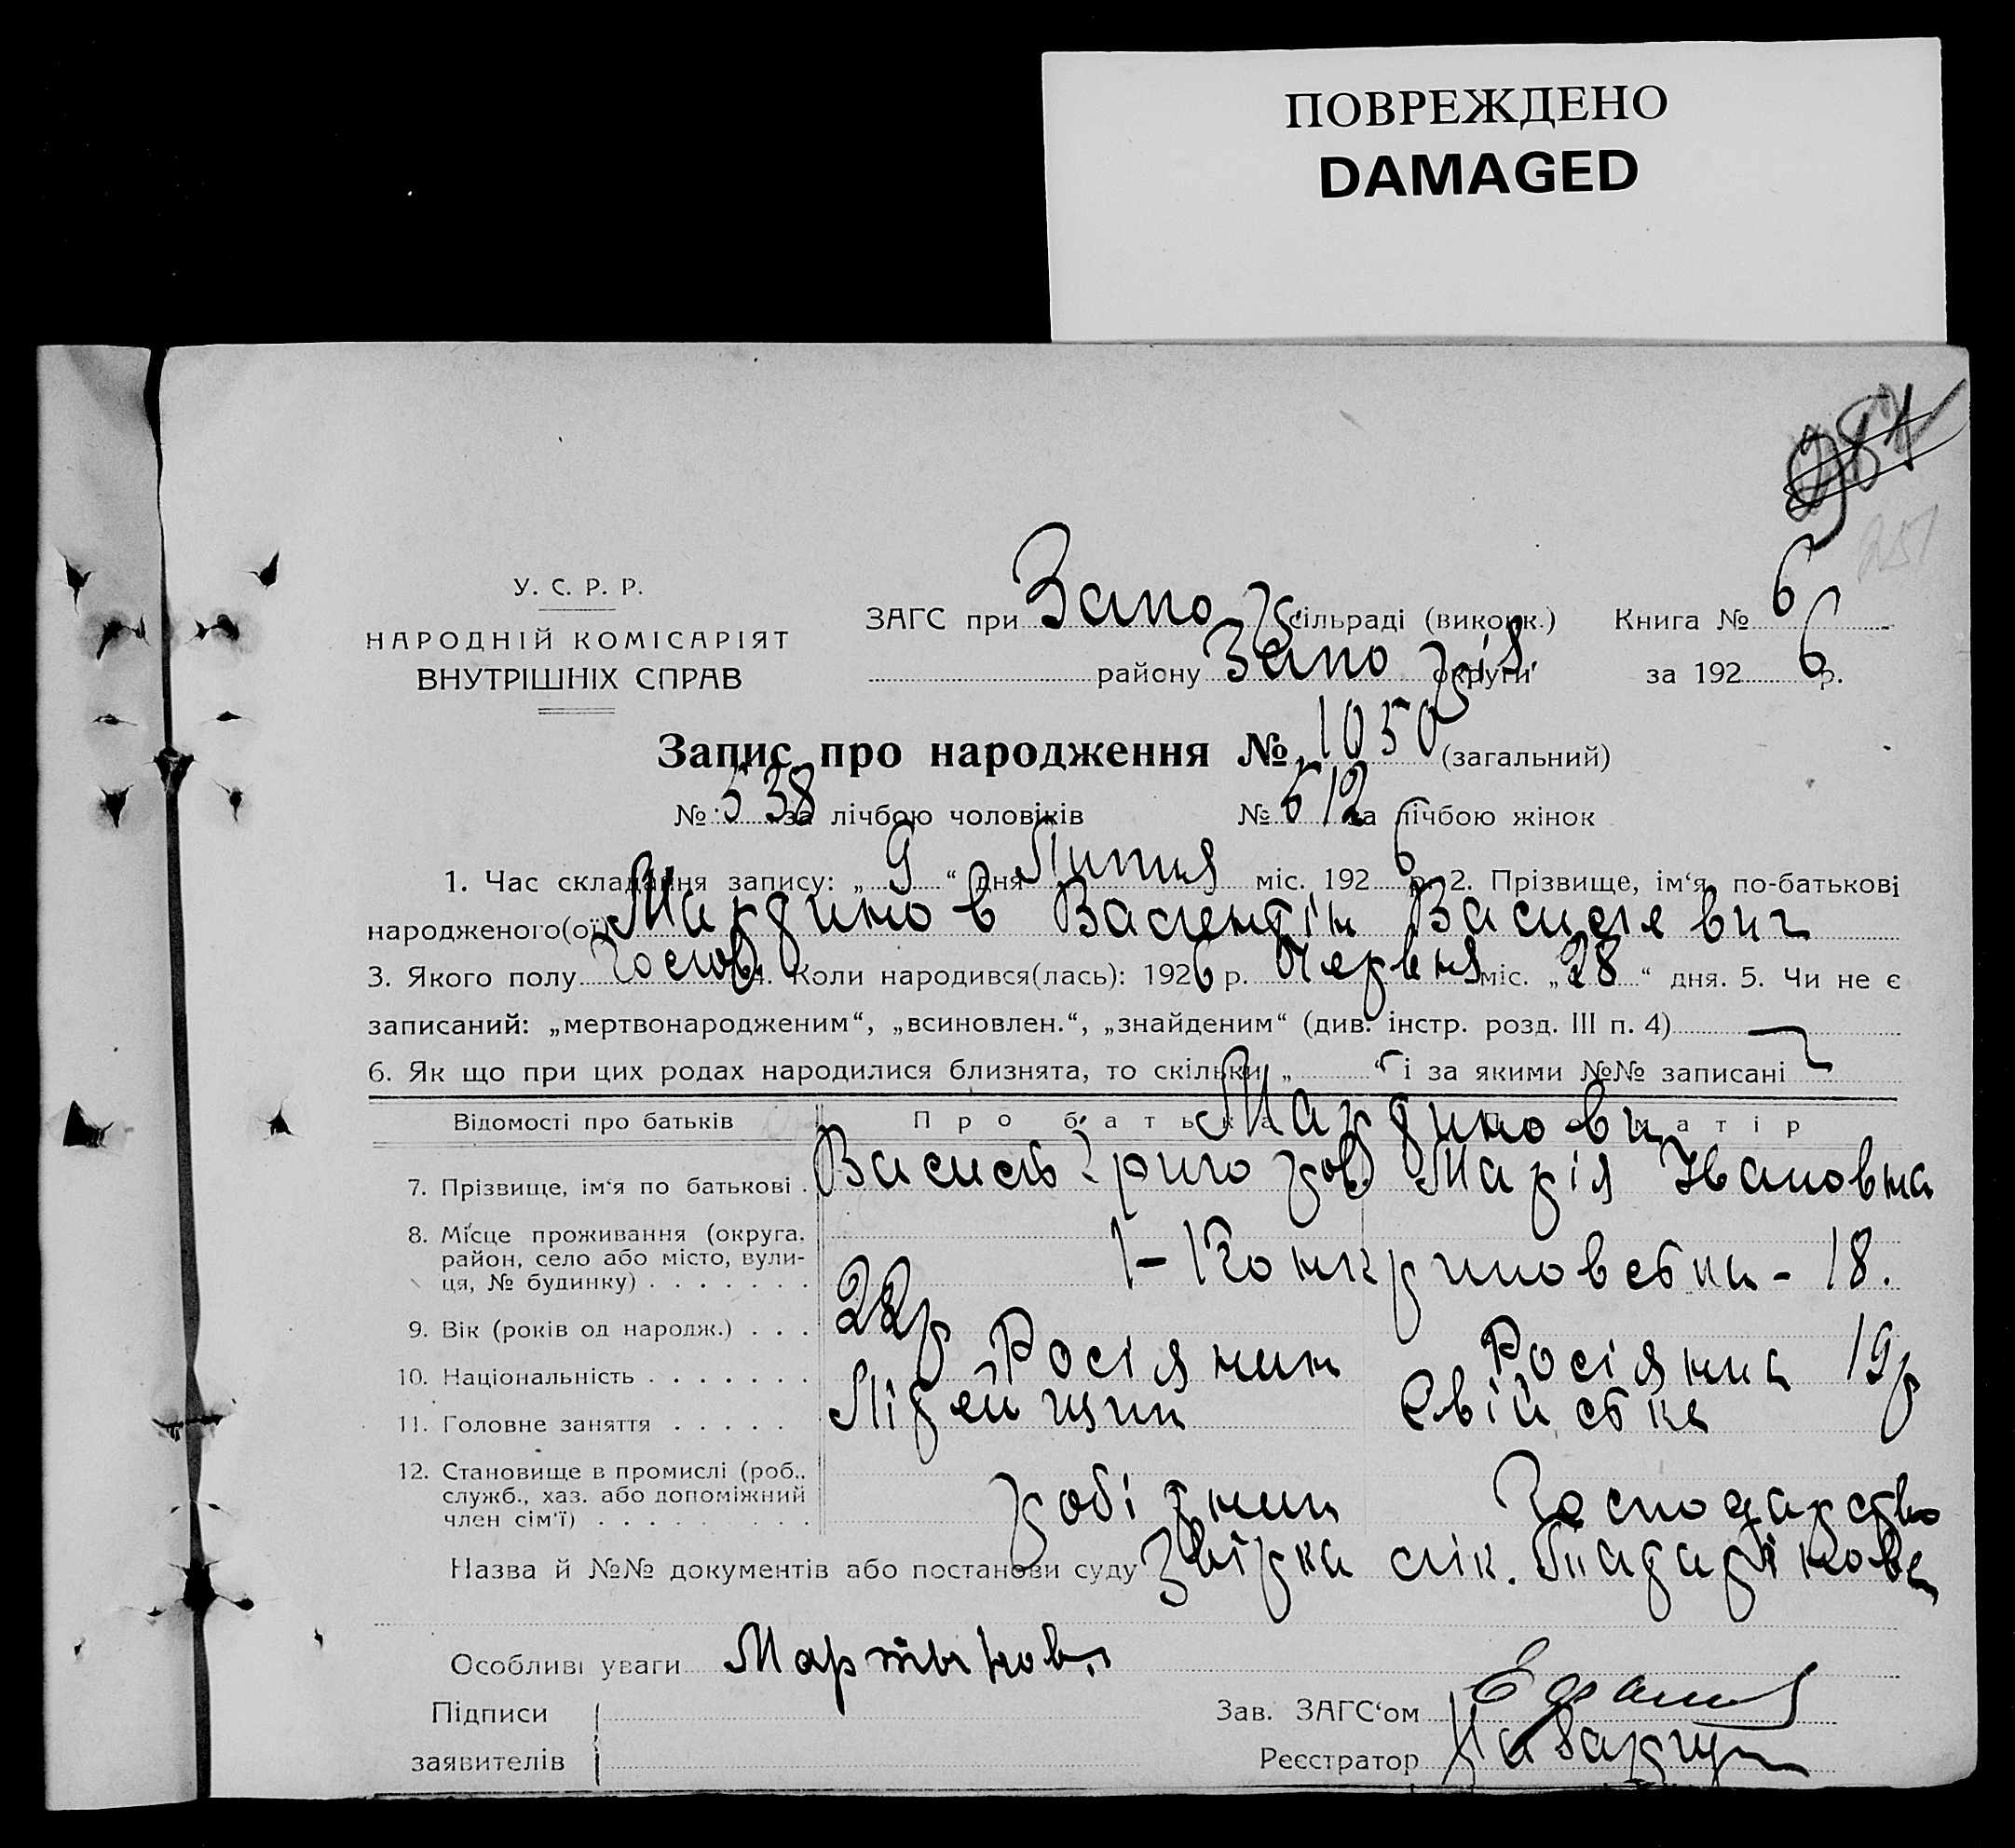 ПОВРЕЖДЕНО
DAMAGED
251
У. С. Р. Р.
НАРОДНІЙ КОМІСАРІЯТ
ВНУТРІШНІХ СПРАВ
ЗАГС при Запор сільраді (виконк.) Книга № 6
району Запоріз. округи за 1926 р.
Запис про народження № 1050 (загальний)
№ 538 за лічбою чоловіків № 512 за лічбою жінок
1. Час складання запису: „ 9 “ дня Липня міс. 1926 р. 2. Прізвище, ім‘я, по-батькові
народженого(ої) Мартинов Валентін Василевич
3. Якого полу Чолов. 4. Коли народився(лась): 1926 р. Червня міс. „ 28 “ дня. 5. Чи не є
записаний: „мертвонародженим“, „всиновлен.“, „знайденим“ (див. інстр. розд. III п. 4) —
6. Як що при цих родах народилися близнята, то скільки „ “ і за якими №№ записані
Відомості про батьків Про батька Про матір
Мартинови
7. Прізвище, ім‘я по батькові . Василь Григоров. Марія Івановна
8. Місце проживання (округа,
район, село або місто, вули-
ця, № будинку) . . . . . . . 18.
9. Вік (років од народж.) . . . 22 р 19 р
10. Національність . . . . . . . Росіянин Росіянка
11. Головне заняття . . . . . Літейщик Свійська
12. Становище в промислі (роб.,
служб., хаз. або допоміжний
член сім‘ї) . . . . . . . . . робітник Господарство
Назва й №№ документів або постанови суду Звірка лік.
Особливі уваги Мартынов
Підписи
заявителів
Зав. ЗАГС‘ом
Реєстратор